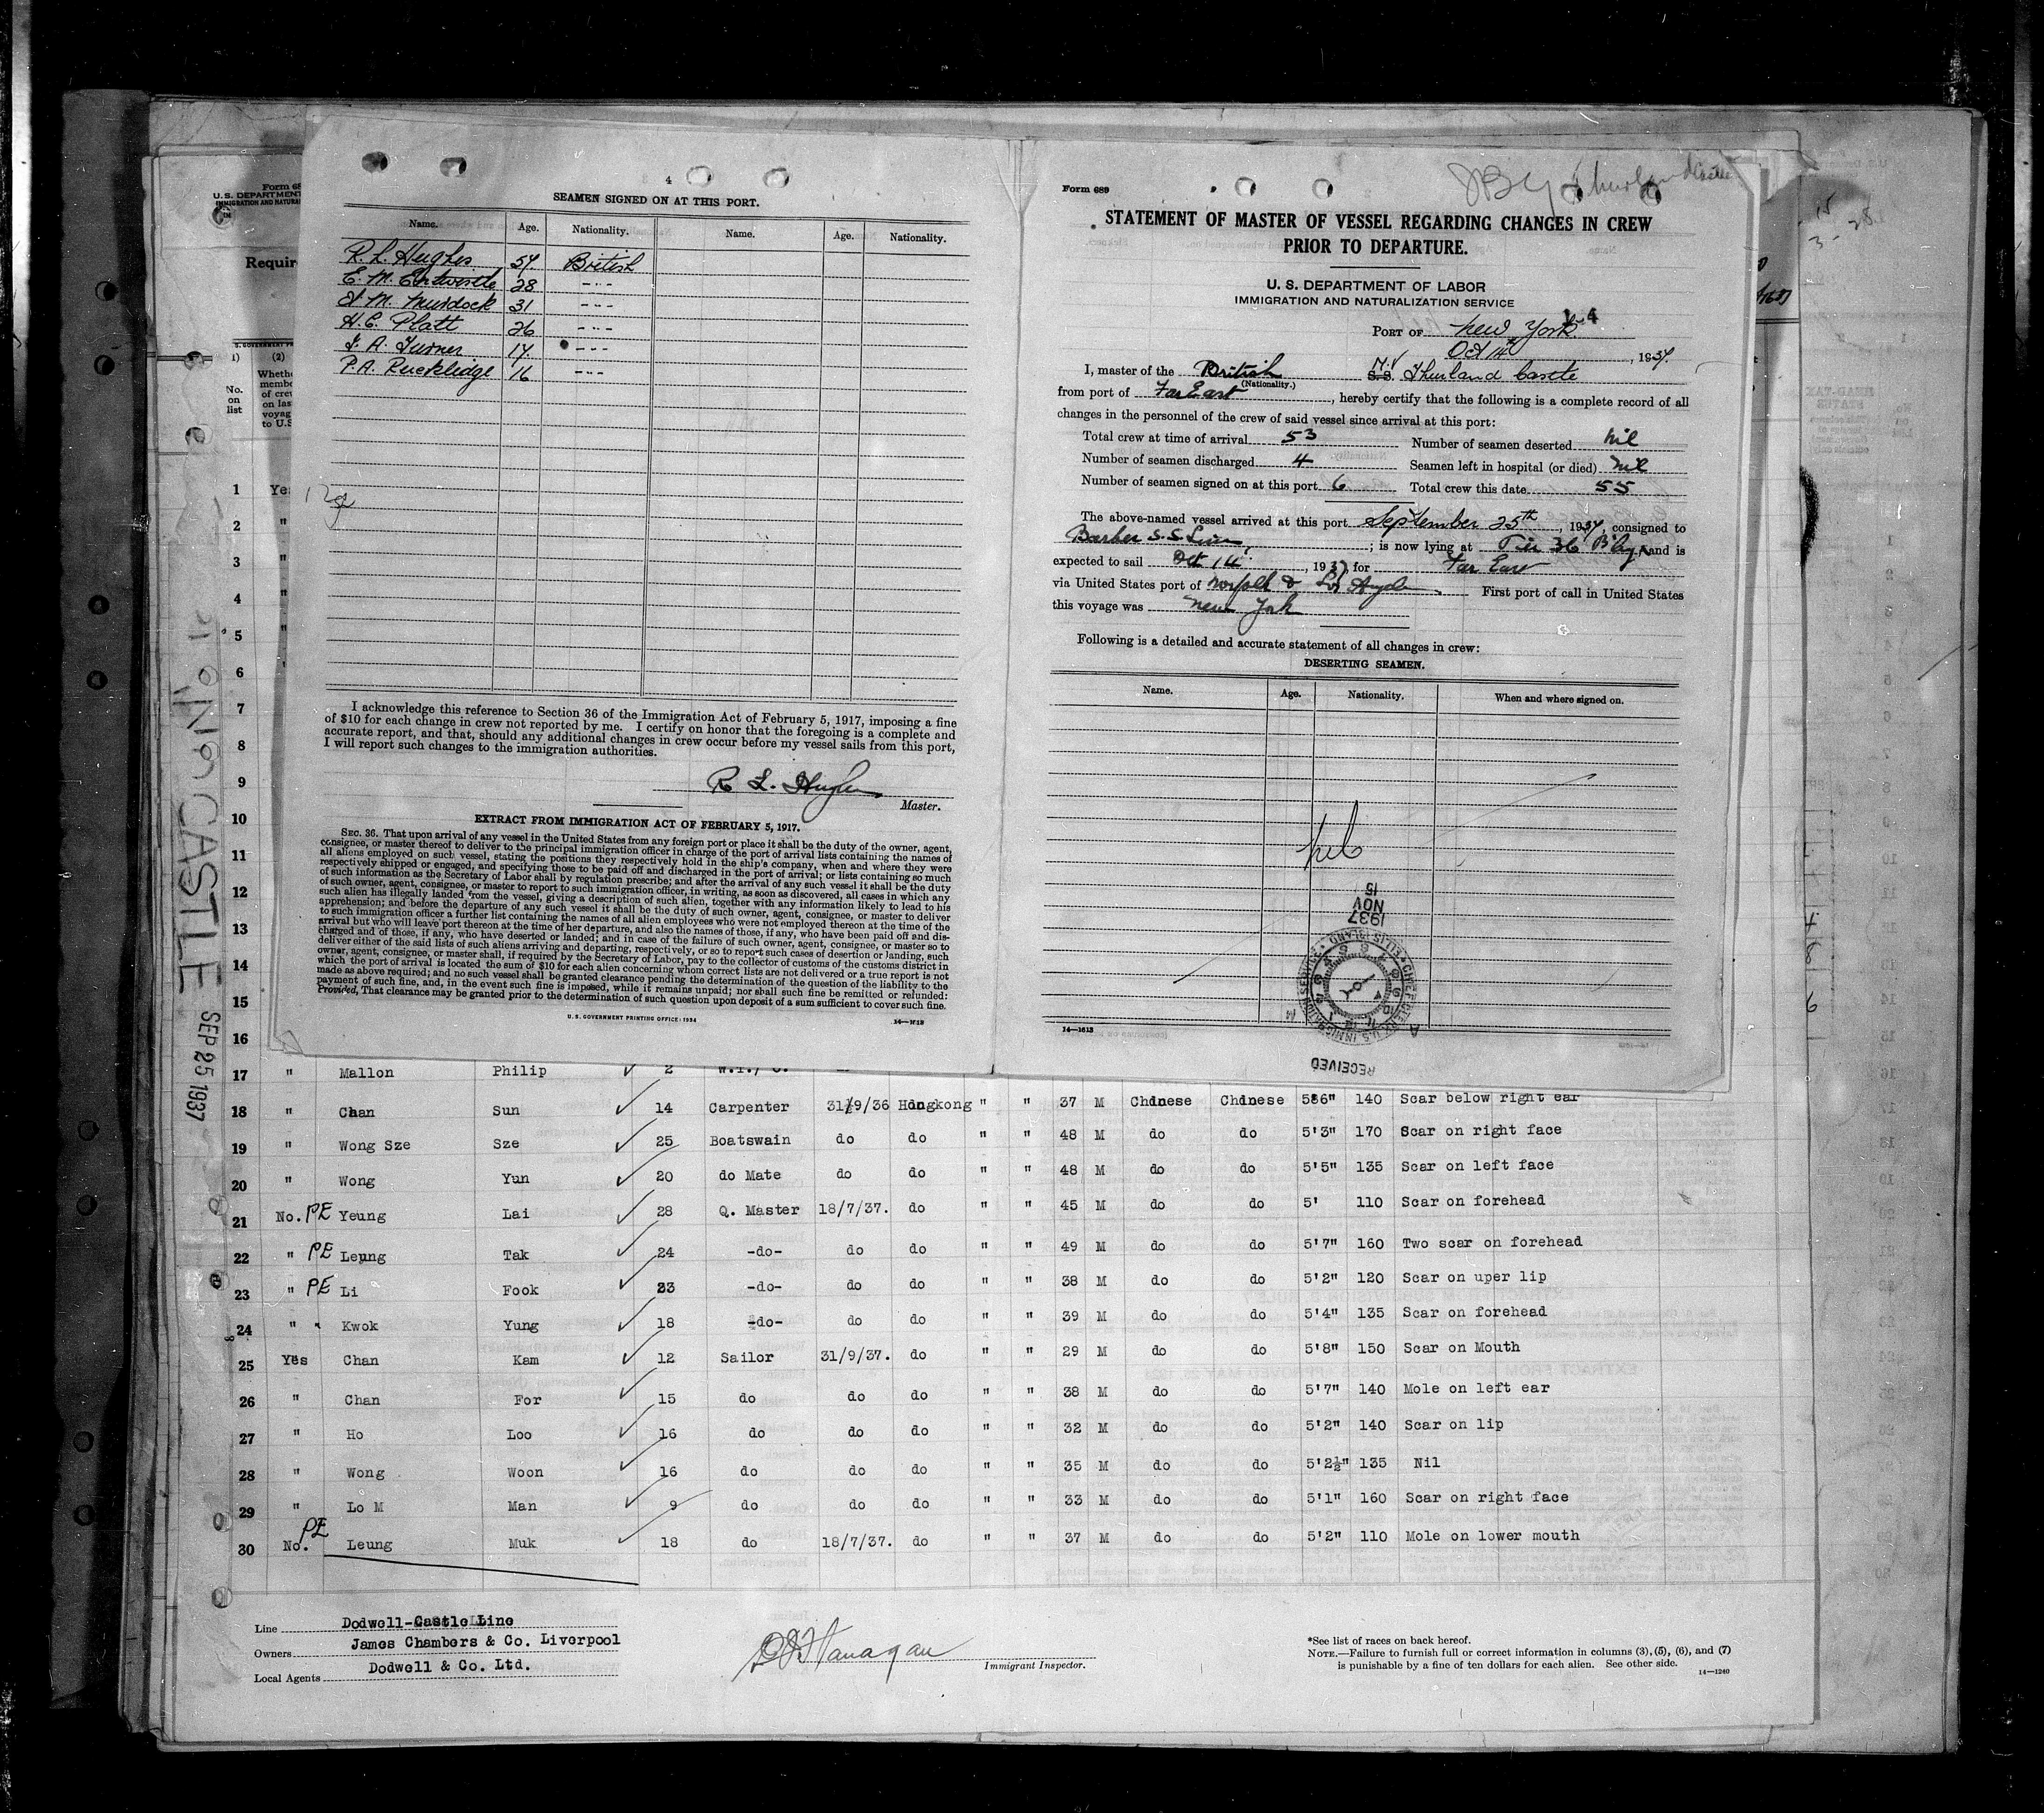 4
SEAMEN SIGNED ON AT THIS PORT.
Name. Age. Nationality. Name. Age. Nationality.
R. L. Hughes 54 British
E. M. Entwistle 28 - - -
M. Murdock 31 - - -
H. E. Platt 26 - - -
A. Turner 17 - - -
P. A. Rucklidge 16 - - -
I acknowledge this reference to Section 36 of the Immigration Act of February 5, 1917, imposing a fine
of $10 for each change in crew not reported by me. I certify on honor that the foregoing is a complete and
accurate report, and that, should any additional changes in crew occur before my vessel sails from this port,
I will report such changes to the immigration authorities.
R L. Hughes
Master.
EXTRACT FROM IMMIGRATION ACT OF FEBRUARY 5, 1917.
SEC. 36. That upon arrival of any vessel in the United States from any foreign port or place it shall be the duty of the owner, agent,
consignee, or master thereof to deliver to the principal immigration officer in charge of the port of arrival lists containing the names of
all aliens employed on such vessel, stating the positions they respectively hold in the ship's company, when and where they were
respectively shipped or engaged, and specifying those to be paid off and discharged in the port of arrival; or lists containing so much
of such information as the Secretary of Labor shall by regulation prescribe; and after the arrival of any such vessel it shall be the duty
of such owner, agent, consignee, or master to report to such immigration officer, in writing, as soon as discovered, all cases in which any
such alien has illegally landed from the vessel, giving a description of such alien, together with any information likely to lead to his
apprehension; and before the departure of any such vessel it shall be the duty of such owner, agent, consignee, or master to deliver
to such immigration officer a further list containing the names of all alien employees who were not employed thereon at the time of the
arrival but who will leave port thereon at the time of her departure, and also the names of those, if any, who have been paid off and dis-
charged and of those, if any, who have deserted or landed; and in case of the failure of such owner, agent, consignee, or master so to
deliver either of the said lists of such aliens arriving and departing, respectively, or so to report such cases of desertion or landing, such
owner, agent, consignee, or master shall, if required by the Secretary of Labor, pay to the collector of customs of the customs district in
which the port of arrival is located the sum of $10 for each alien concerning whom correct lists are not delivered or a true report is not
made as above required; and no such vessel shall be granted clearance pending the determination of the question of the liability to the
payment of such fine, and, in the event such fine is imposed, while it remains unpaid; nor shall such fine be remitted or refunded:
Provided, That clearance may be granted prior to the determination of such question upon deposit of a sum sufficient to cover such fine.
U. S. GOVERNMENT PRINTING OFFICE: 1934 14—1613
Form 689
Thurland Castle
STATEMENT OF MASTER OF VESSEL REGARDING CHANGES IN CREW
PRIOR TO DEPARTURE.
U. S. DEPARTMENT OF LABOR
IMMIGRATION AND NATURALIZATION SERVICE
PORT OF New York
Oct 14th, 1937
I, master of the British M.V S.S. Thurland Castle
(Nationality.)
from port of Far East, hereby certify that the following is a complete record of all
changes in the personnel of the crew of said vessel since arrival at this port:
Total crew at time of arrival 53 Number of seamen deserted nil
Number of seamen discharged 4 Seamen left in hospital (or died) nil
Number of seamen signed on at this port 6 Total crew this date 55
The above-named vessel arrived at this port September 25th, 1937, consigned to
Barber S.S Line, ; is now lying at Pier 36 B'klyn and is
expected to sail Oct 14, 1937, for Far East
via United States port of Norfolk & Los Angeles. First port of call in United States
this voyage was New York
Following is a detailed and accurate statement of all changes in crew:
DESERTING SEAMEN.
Name. Age. Nationality. When and where signed on.
nil
1937 NOV 15
CHIEF
U.S. IMMIGRATION SERVICE
ELLIS ISLAND
RECEIVED
14—1613
Form 68
U. S. DEPARTMENT
IMMIGRATION AND NATURA
Requir
1) (2)
No. on list
Wheth
memb
of crew
on las
voyag
to U.S
1 Yes
2 "
3 "
4 "
5 "
6
7
8
9
10
11
12
13
14
15
16
CASTLE
SEP 25 1937
17 " Mallon Philip 2
18 " Chan Sun 14 Carpenter 31/9/36 Hongkong " " 37 M Chinese Chinese 5'6" 140 Scar below right ear
19 " Wong Sze Sze 25 Boatswain do do " " 48 M do do 5'3" 170 Scar on right face
20 " Wong Yun 20 do Mate do do " " 48 M do do 5'5" 135 Scar on left face
21 No. PE Yeung Lai 28 Q. Master 18/7/37. do " " 45 M do do 5' 110 Scar on forehead
22 " PE Leung Tak 24 -do- do do " " 49 M do do 5'7" 160 Two scar on forehead
23 " PE Li Fook 33 -do- do do " " 38 M do do 5'2" 120 Scar on uper lip
24 " Kwok Yung 18 -do- do do " " 39 M do do 5'4" 135 Scar on forehead
25 Yes Chan Kam 12 Sailor 31/9/37. do " " 29 M do do 5'8" 150 Scar on Mouth
26 " Chan For 15 do do do " " 38 M do do 5'7" 140 Mole on left ear
27 " Ho Loo 16 do do do " " 32 M do do 5'2" 140 Scar on lip
28 " Wong Woon 16 do do do " " 35 M do do 5'2½" 135 Nil
29 " Lo M Man 9 do do do " " 33 M do do 5'1" 160 Scar on right face
30 No. PE Leung Muk 18 do 18/7/37. do " " 37 M do do 5'2" 110 Mole on lower mouth
Line Dodwell-Castle Line
Owners James Chambers & Co. Liverpool
Local Agents Dodwell & Co. Ltd.
Immigrant Inspector.
*See list of races on back hereof.
NOTE.—Failure to furnish full or correct information in columns (3), (5), (6), and (7)
is punishable by a fine of ten dollars for each alien. See other side.
14—1240